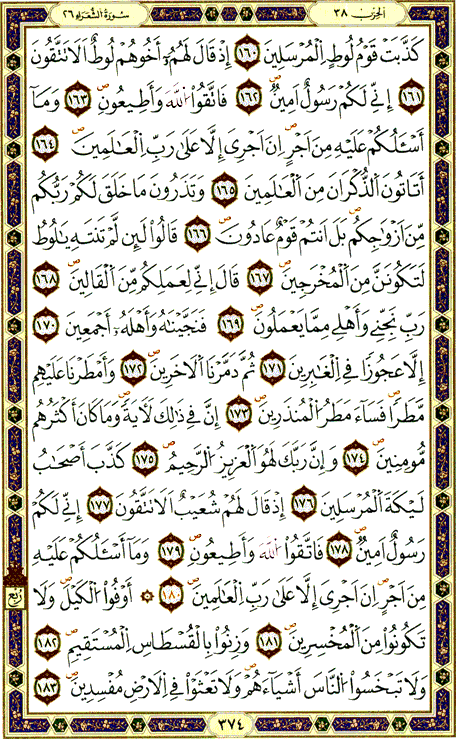 الحِزْب ٣٨
سُورَةُ الشُّعَرَاءِ ٢٦
كَذَّبَتْ قَوْمُ لُوطٍ الْمُرْسَلِينَ ١٦٠ إِذْ قَالَ لَهُمُۥٓ أَخُوهُمْ لُوطٌ اَلَا تَتَّقُونَ
١٦١ إِنِّي لَكُمْ رَسُولٌ اَمِينٌ ١٦٢ فَاتَّقُوا اللَّهَ وَأَطِيعُونِ ١٦٣ وَمَآ
أَسْـَٔلُكُمْ عَلَيْهِ مِنَ اَجْرٍ اِنَ اَجْرِيَ إِلَّا عَلَىٰ رَبِّ الْعَٰلَمِينَ ١٦٤
أَتَاتُونَ الذُّكْرَانَ مِنَ الْعَٰلَمِينَ ١٦٥ وَتَذَرُونَ مَا خَلَقَ لَكُمْ رَبُّكُم
مِّنَ اَزْوَٰجِكُم بَلَ اَنتُمْ قَوْمٌ عَادُونَ ١٦٦ قَالُوا لَئِن لَّمْ تَنتَهِ يَٰلُوطُ
لَتَكُونَنَّ مِنَ الْمُخْرَجِينَ ١٦٧ قَالَ إِنِّي لِعَمَلِكُم مِّنَ الْقَالِينَ ١٦٨
رَبِّ نَجِّنِي وَأَهْلِي مِمَّا يَعْمَلُونَ ١٦٩ فَنَجَّيْنَٰهُ وَأَهْلَهُۥٓ أَجْمَعِينَ ١٧٠
إِلَّا عَجُوزًا فِي الْغَٰبِرِينَ ١٧١ ثُمَّ دَمَّرْنَا اَلَاخَرِينَ ١٧٢ وَأَمْطَرْنَا عَلَيْهِم
مَّطَرًا فَسَآءَ مَطَرُ الْمُنذَرِينَ ١٧٣ إِنَّ فِي ذَٰلِكَ لَأٓيَةً وَمَا كَانَ أَكْثَرُهُم
مُّومِنِينَ ١٧٤ وَإِنَّ رَبَّكَ لَهُوَ الْعَزِيزُ الرَّحِيمُ ١٧٥ كَذَّبَ أَصْحَٰبُ
لَيْكَةَ الْمُرْسَلِينَ ١٧٦ إِذْ قَالَ لَهُمْ شُعَيْبٌ اَلَا تَتَّقُونَ ١٧٧ إِنِّي لَكُمْ
رَسُولٌ اَمِينٌ ١٧٨ فَاتَّقُوا اللَّهَ وَأَطِيعُونِ ١٧٩ وَمَآ أَسْـَٔلُكُمْ عَلَيْهِ
مِنَ اَجْرٍ اِنَ اَجْرِيَ إِلَّا عَلَىٰ رَبِّ الْعَٰلَمِينَ ١٨٠ ۞ أَوْفُوا الْكَيْلَ وَلَا
ربع
تَكُونُوا مِنَ الْمُخْسِرِينَ ١٨١ وَزِنُوا بِالْقُسْطَاسِ الْمُسْتَقِيمِ ١٨٢
وَلَا تَبْخَسُوا النَّاسَ أَشْيَآءَهُمْ وَلَا تَعْثَوْا فِي الَارْضِ مُفْسِدِينَ ١٨٣
٣٧٤